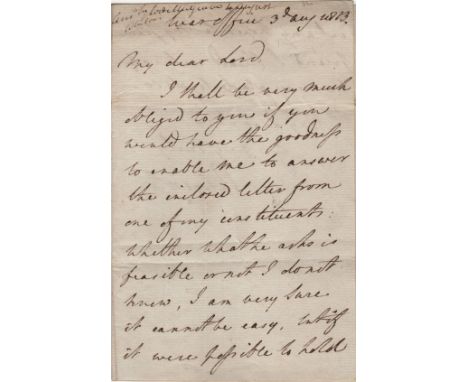 War Office 3d Aug 1813.
My dear Lord
I shall be very much
obliged to you if you
would have the goodness
to enable me to answer
the inclosed letter from
one of my constituents.
Whether what he asks is
feasible or not I do not
know, I am very sure
it cannot be easy, but if
it were possible to hold